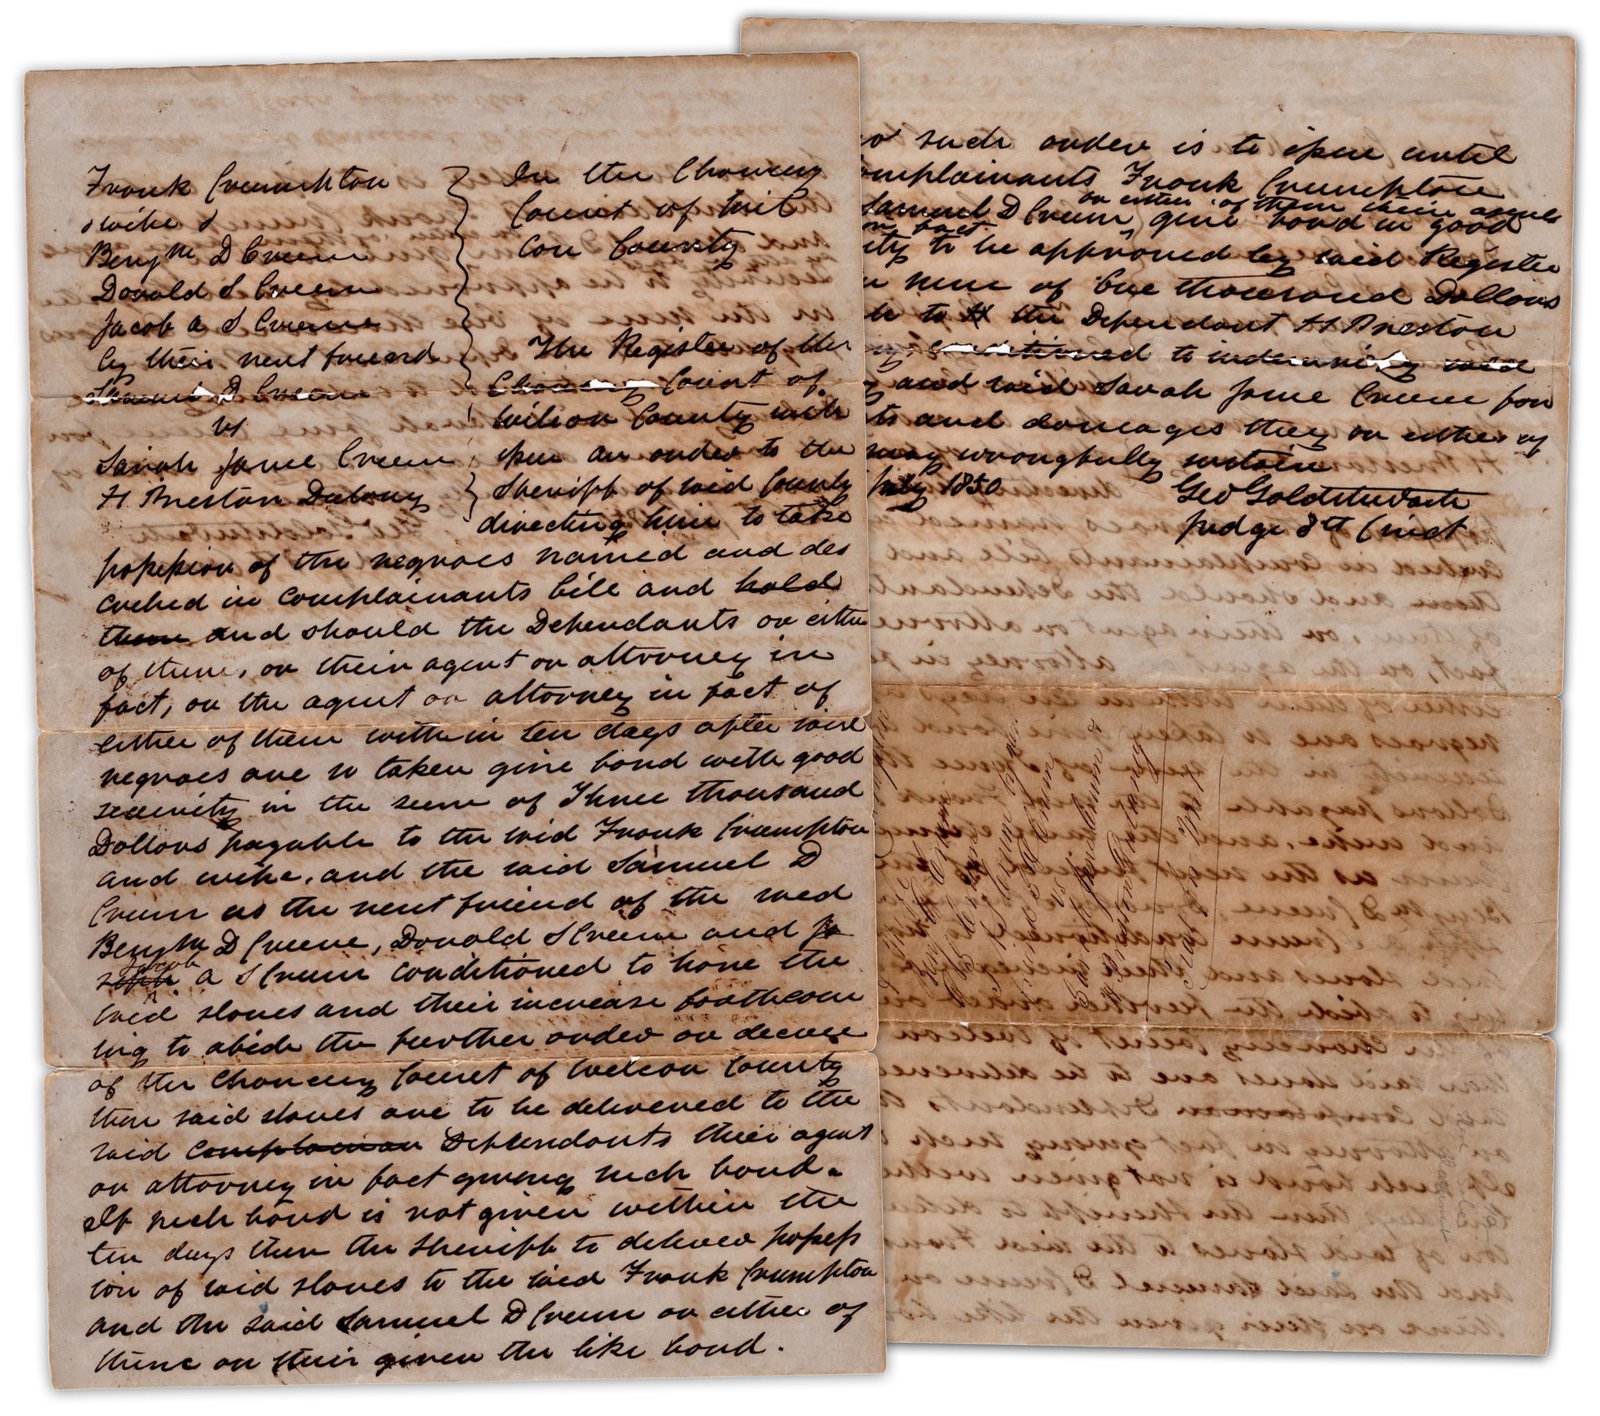 Frank Crumpton
& wife &
Benj M D Creem
Donald S Creem
Jacob A S Creem
by their next friend
Samuel D Creem
vs
Sarah Jane Creem
H Preston
In the Chancery
Court of Wil
con County
The Register of the
Chancery Court of
Wilson County will
issue an order to the
Sheriff of said County
directing him to take
possession of the negroes named and des
cribed in complainants bill and hold
them and should the Defendants or either
of them, or their agent or attorney in
fact, or the agent or attorney in fact of
either of them within ten days after said
negroes are so taken give bond with good
security in the sum of Three thousand
Dollars payable to the said Frank Crumpton
and wife, and the said Samuel D
Creem as the next friend of the said
Benj M D Creem, Donald S Creem and Ja
Jacob
A S Creem conditioned to have the
said slaves and their increase forthcom
ing to abide the further order or decree
of the Chancery Court of Wilson County
then said slaves are to be delivered to the
said complainan Defendants their agent
or attorney in fact giving such bond.
If such bond is not given within the
ten days then the Sheriff to deliver possess
ion of said slaves to the said Frank Crumpton
and the said Samuel D Creem or either of
them on their given the like bond.
such order is to issue until
omplainants Frank Crumpton
or either of them their agents
Samuel D Creem, give bond in good
in fact
ity to be approved by said Register
sum of five thousand Dollars
to H the Defendant H Preston
conditioned to indemnify said
and said Sarah Jane Creem for
ts and damages they or either of
may wrongfully sustain
July 1850
Geo Goldthwaite
Judge 8th Circt